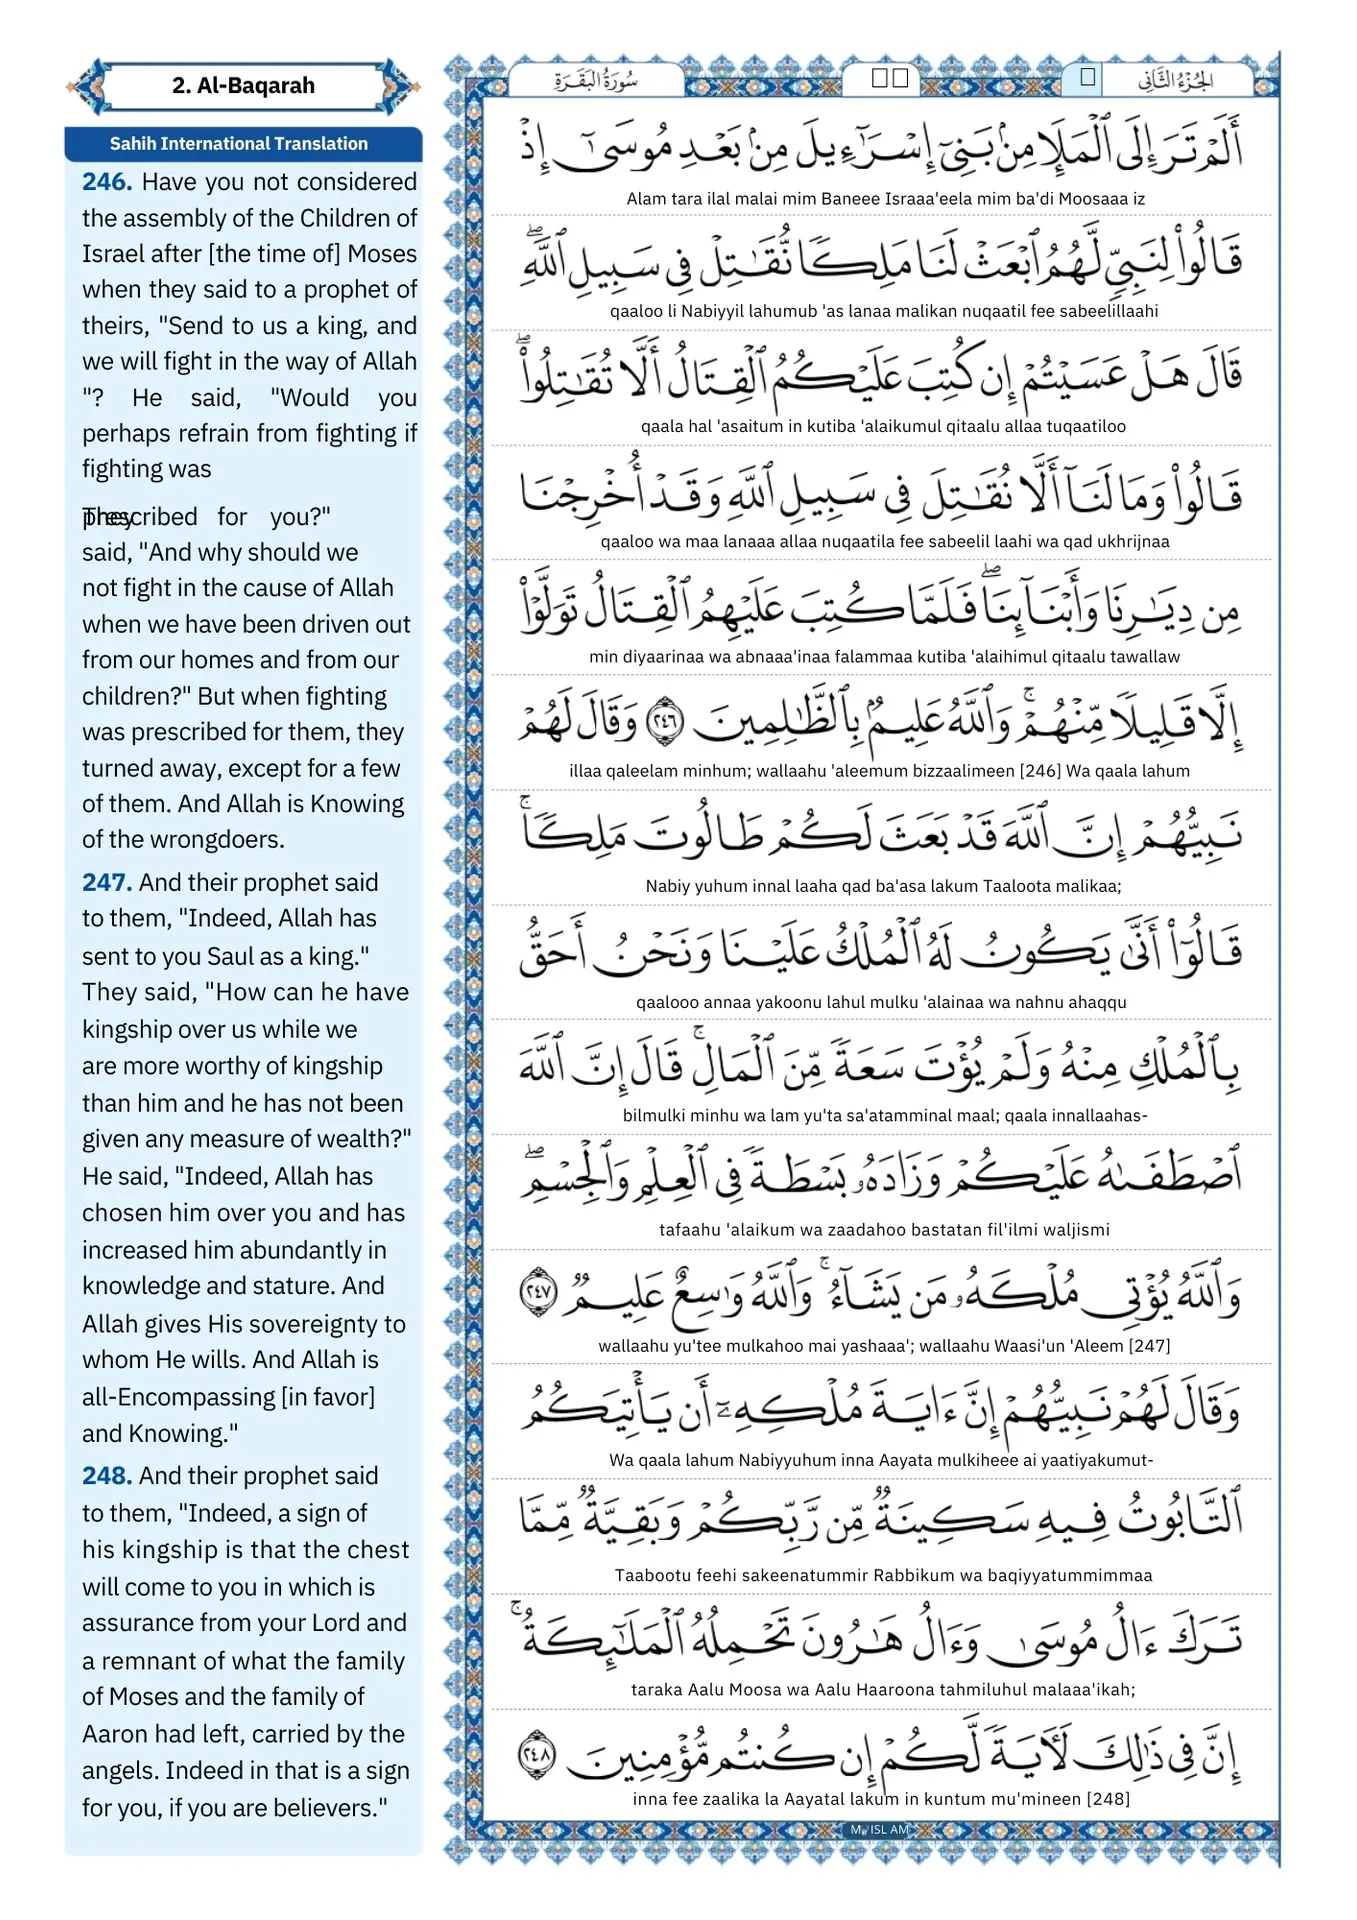 2. Al-Baqarah
Sahih International Translation
246. Have you not considered
the assembly of the Children of
Israel after [the time of] Moses
when they said to a prophet of
theirs, "Send to us a king, and
we will fight in the way of Allah
"? He said, "Would you
perhaps refrain from fighting if
fighting was
prescribed for you?" They
said, "And why should we
not fight in the cause of Allah
when we have been driven out
from our homes and from our
children?" But when fighting
was prescribed for them, they
turned away, except for a few
of them. And Allah is Knowing
of the wrongdoers.
247. And their prophet said
to them, "Indeed, Allah has
sent to you Saul as a king."
They said, "How can he have
kingship over us while we
are more worthy of kingship
than him and he has not been
given any measure of wealth?"
He said, "Indeed, Allah has
chosen him over you and has
increased him abundantly in
knowledge and stature. And
Allah gives His sovereignty to
whom He wills. And Allah is
all-Encompassing [in favor]
and Knowing."
248. And their prophet said
to them, "Indeed, a sign of
his kingship is that the chest
will come to you in which is
assurance from your Lord and
a remnant of what the family
of Moses and the family of
Aaron had left, carried by the
angels. Indeed in that is a sign
for you, if you are believers."
الجُزْءُ الثَّانِي
سُورَةُ البَقَرَةِ
أَلَمْ تَرَ إِلَى ٱلْمَلَإِ مِنۢ بَنِىٓ إِسْرَٰٓءِيلَ مِنۢ بَعْدِ مُوسَىٰٓ إِذْ
Alam tara ilal malai mim Baneee Israaa'eela mim ba'di Moosaaa iz
قَالُوا۟ لِنَبِىٍّ لَّهُمُ ٱبْعَثْ لَنَا مَلِكًا نُّقَٰتِلْ فِى سَبِيلِ ٱللَّهِ ۖ
qaaloo li Nabiyyil lahumub 'as lanaa malikan nuqaatil fee sabeelillaahi
قَالَ هَلْ عَسَيْتُمْ إِن كُتِبَ عَلَيْكُمُ ٱلْقِتَالُ أَلَّا تُقَٰتِلُوا۟ ۖ
qaala hal 'asaitum in kutiba 'alaikumul qitaalu allaa tuqaatiloo
قَالُوا۟ وَمَا لَنَآ أَلَّا نُقَٰتِلَ فِى سَبِيلِ ٱللَّهِ وَقَدْ أُخْرِجْنَا
qaaloo wa maa lanaaa allaa nuqaatila fee sabeelil laahi wa qad ukhrijnaa
مِن دِيَٰرِنَا وَأَبْنَآئِنَا ۖ فَلَمَّا كُتِبَ عَلَيْهِمُ ٱلْقِتَالُ تَوَلَّوْا۟
min diyaarinaa wa abnaaa'inaa falammaa kutiba 'alaihimul qitaalu tawallaw
إِلَّا قَلِيلًا مِّنْهُمْ ۗ وَٱللَّهُ عَلِيمٌۢ بِٱلظَّٰلِمِينَ ٢٤٦ وَقَالَ لَهُمْ
illaa qaleelam minhum; wallaahu 'aleemum bizzaalimeen [246] Wa qaala lahum
نَبِيُّهُمْ إِنَّ ٱللَّهَ قَدْ بَعَثَ لَكُمْ طَالُوتَ مَلِكًا ۚ
Nabiy yuhum innal laaha qad ba'asa lakum Taaloota malikaa;
قَالُوٓا۟ أَنَّىٰ يَكُونُ لَهُ ٱلْمُلْكُ عَلَيْنَا وَنَحْنُ أَحَقُّ
qaalooo annaa yakoonu lahul mulku 'alainaa wa nahnu ahaqqu
بِٱلْمُلْكِ مِنْهُ وَلَمْ يُؤْتَ سَعَةً مِّنَ ٱلْمَالِ ۚ قَالَ إِنَّ ٱللَّهَ
bilmulki minhu wa lam yu'ta sa'atamminal maal; qaala innallaahas-
ٱصْطَفَىٰهُ عَلَيْكُمْ وَزَادَهُۥ بَسْطَةً فِى ٱلْعِلْمِ وَٱلْجِسْمِ ۖ
tafaahu 'alaikum wa zaadahoo bastatan fil'ilmi waljismi
وَٱللَّهُ يُؤْتِى مُلْكَهُۥ مَن يَشَآءُ ۚ وَٱللَّهُ وَٰسِعٌ عَلِيمٌ ٢٤٧
wallaahu yu'tee mulkahoo mai yashaaa'; wallaahu Waasi'un 'Aleem [247]
وَقَالَ لَهُمْ نَبِيُّهُمْ إِنَّ ءَايَةَ مُلْكِهِۦٓ أَن يَأْتِيَكُمُ
Wa qaala lahum Nabiyyuhum inna Aayata mulkiheee ai yaatiyakumut-
ٱلتَّابُوتُ فِيهِ سَكِينَةٌ مِّن رَّبِّكُمْ وَبَقِيَّةٌ مِّمَّا
Taabootu feehi sakeenatummir Rabbikum wa baqiyyatummimmaa
تَرَكَ ءَالُ مُوسَىٰ وَءَالُ هَٰرُونَ تَحْمِلُهُ ٱلْمَلَٰٓئِكَةُ ۚ
taraka Aalu Moosa wa Aalu Haaroona tahmiluhul malaaa'ikah;
إِنَّ فِى ذَٰلِكَ لَءَايَةً لَّكُمْ إِن كُنتُم مُّؤْمِنِينَ ٢٤٨
inna fee zaalika la Aayatal lakum in kuntum mu'mineen [248]